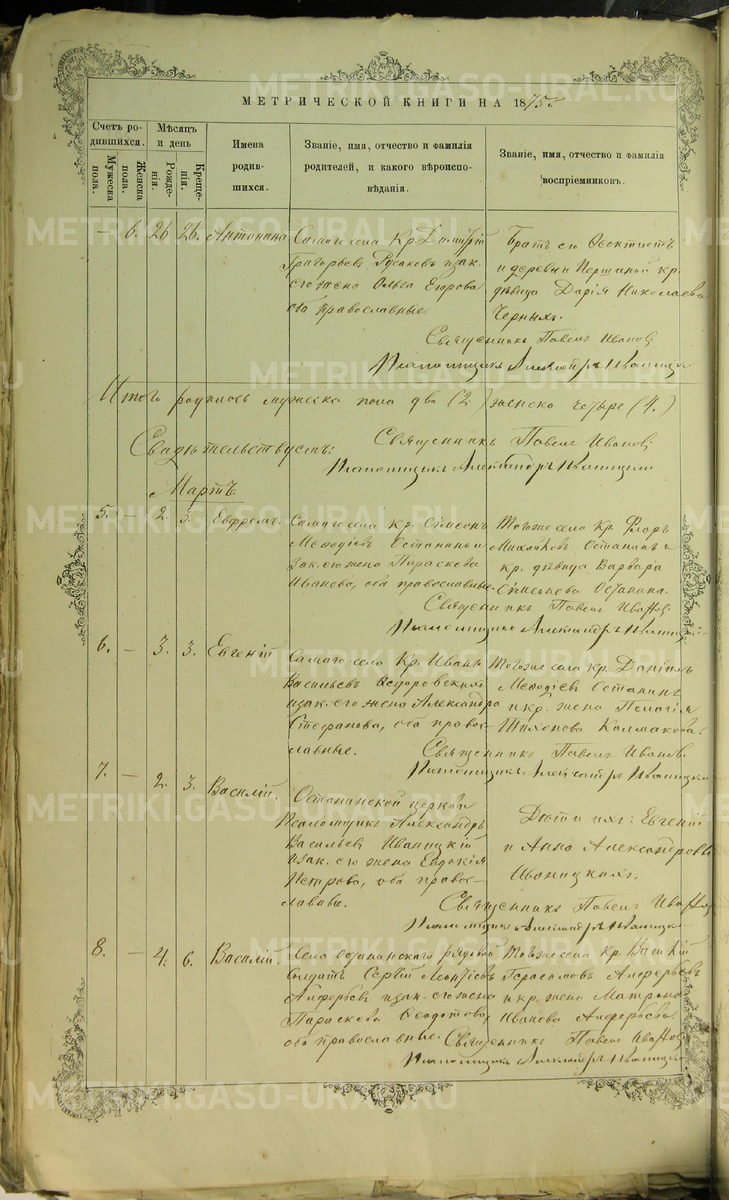 МЕТРИЧЕСКОЙ КНИГИ НА 1875
Счетъ ро-
дившихся.
Мужеска пола.
Женска пола.
Мѣсяцъ
и день
Рожде-
нія.
Креще-
нія.
Имена
родив-
шихся.
Званіе, имя, отчество и фамилія
родителей, и какого вѣроиспо-
вѣданія.
Званіе, имя, отчество и фамилія
воспріемниковъ.
— 6. 26 26. Антонина
Самаго села Кр. Димитрій
Григорьевъ Русаковъ и зак.
его жена Ольга Егорова
оба православные.
Братъ его Ѳеоктистъ
и деревни Першиной кр.
дѣвица Дарія Николаева
Черныхъ.
Священникъ Павелъ Ивановъ
Псаломщикъ Александръ Иваницкій
Итого родилось мужеска пола два (2) женска четыре (4.)
Свидѣтельствуетъ:
Священникъ Павелъ Ивановъ
Псаломщикъ Александръ Иваницкій
Мартъ.
5. — 2. 3. Евфремъ.
Самаго села кр. Симеонъ
Меѳодіевъ Останинъ и
зак. его жена Параскева
Иванова, оба православные.
Тогоже села Кр. Флоръ
Останинъ и
кр. дѣвица Варвара
Симеонова Останина.
Священникъ Павелъ Ивановъ
Псаломщикъ Александръ Иваницкій
6. — 3. 3. Евгеній
Самаго села Кр. Иванъ
Васильевъ Ѳедоровскихъ
и зак. его жена Александра
Стефанова, оба право-
славные.
Тогоже села кр. Даніилъ
Меѳодіевъ Останинъ
и кр. жена Пелагія
Тихонова Калмакова.
Священникъ Павелъ Ивановъ.
Псаломщикъ Александръ Иваницкій
7. — 2. 3. Василій.
Останинской церкви
Псаломщикъ Александръ
Васильевъ Иваницкій
и зак. его жена Евдокія
Петрова, оба право-
славные.
Дѣти ихъ: Евгеній
и Анна Александровы
Иваницкихъ.
Священникъ Павелъ Ивановъ
Псаломщикъ Александръ Иваницкій
8. — 4. 6. Василій.
Села Останинскаго рядовой
солдатъ Сергій Леонтіевъ
Алферьевъ и зак. его жена
Параскева Ѳеодотова,
оба православные.
Тогоже села Кр. Василій
Герасимовъ Алферьевъ
и кр. жена Матрона
Иванова Алферьева.
Священникъ Павелъ Ивановъ
Псаломщикъ Александръ Иваницкій
METRIKI.GASO-URAL.RU